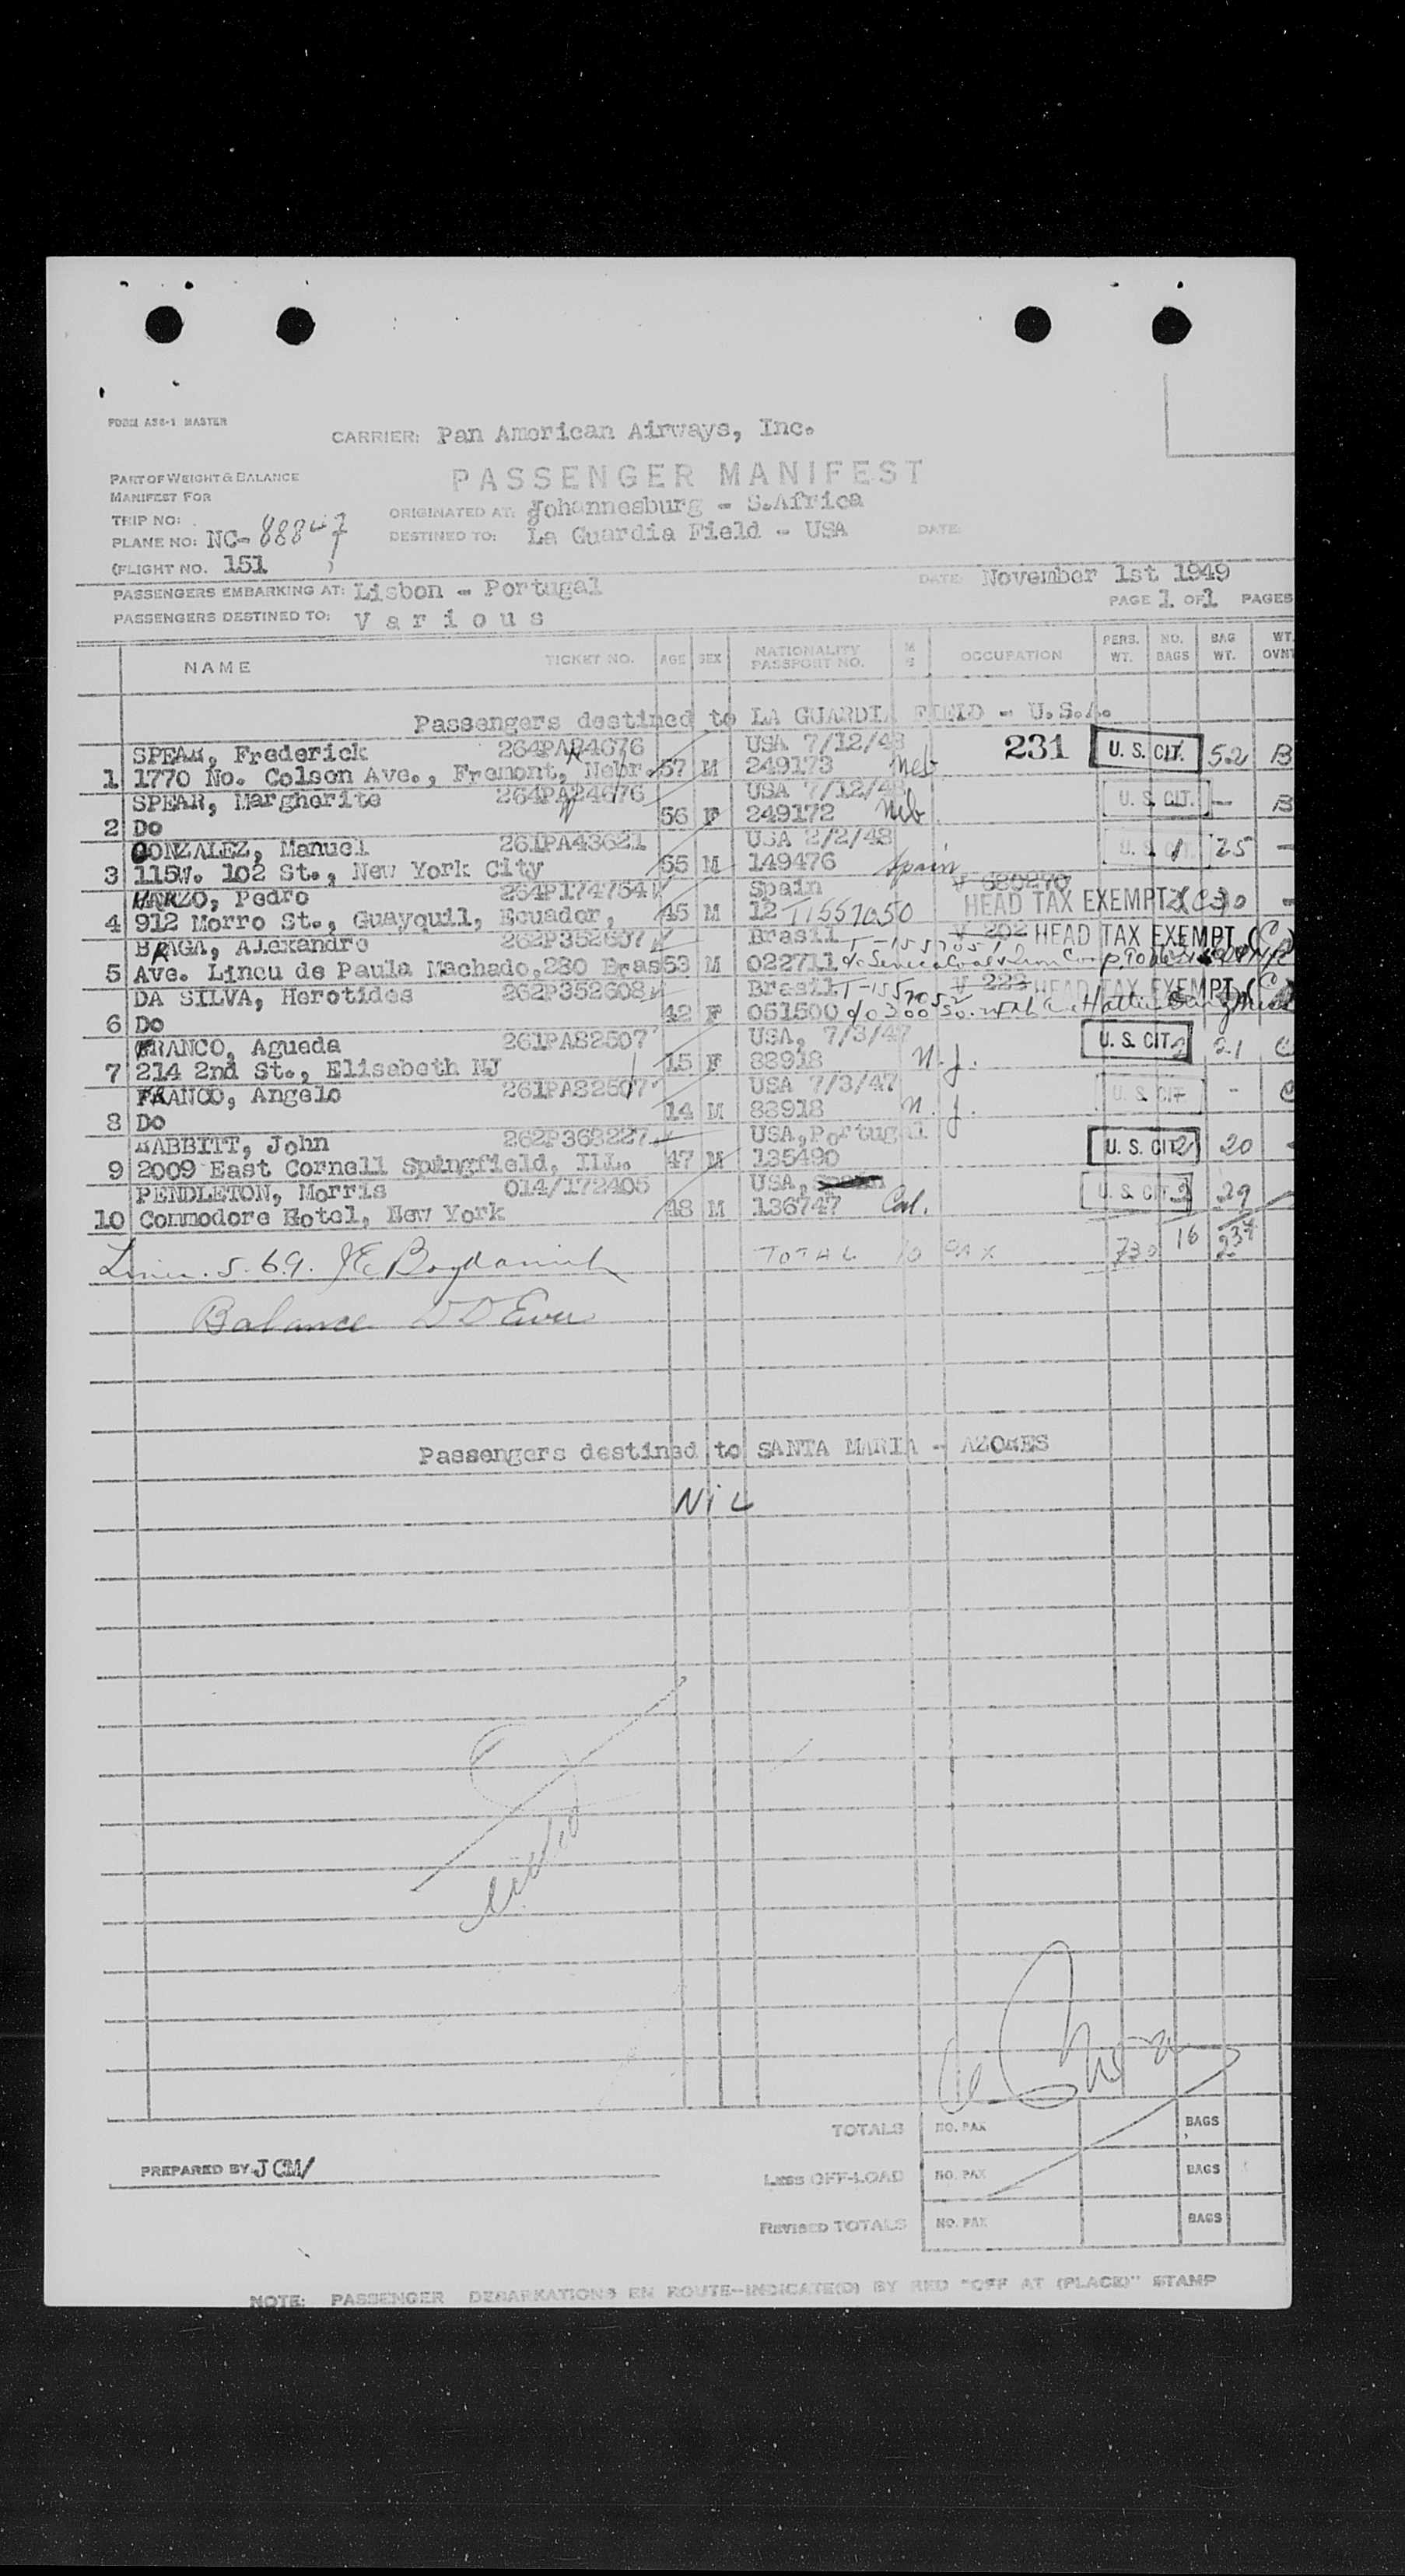 FORM ASS-1 MASTER
CARRIER: Pan American Airways, Inc.
PART OF WEIGHT & BALANCE
MANIFEST FOR
PASSENGER MANIFEST
TRIP NO:
ORIGINATED AT: Johannesburg - S.Africa
PLANE NO: NC-88847
DESTINED TO: La Guardia Field - USA DATE:
(FLIGHT NO. 151
PASSENGERS EMBARKING AT: Lisbon - Portugal DATE: November 1st 1949
PAGE 1 OF 1 PAGES
PASSENGERS DESTINED TO: Various
NAME TICKET NO. AGE SEX NATIONALITY PASSPORT NO. M S OCCUPATION PERS. WT. NO. BAGS BAG WT. WT. OVNT
Passengers destined to LA GUARDIA FIELD - U.S.A.
SPEAR, Frederick 264PA24676 USA 7/12/48 231 U. S. CIT. 52 B
1 1770 No. Colson Ave., Fremont, Nebr. 57 M 249173 Neb
SPEAR, Margherite 264PA24676 USA 7/12/48 U. S. CIT. - B
2 Do 56 F 249172 Neb.
GONZALEZ, Manuel 261PA43621 USA 2/2/48 U. S. CIT. 1 25 -
3 115W. 102 St., New York City 55 M 149476 Spain
MARZO, Pedro 264P174754 Spain V 680290
4 912 Morro St., Guayquil, Ecuador, 45 M 12 T1557050 HEAD TAX EXEMPT 30 -
BRAGA, Alexandro 262P352607 Brasil T-1557051 V 202 HEAD TAX EXEMPT (C)
5 Ave. Lineu de Paula Machado, 280 Bras 53 M 022711 c/o Seneca Coal & Iron Corp.
DA SILVA, Herotides 262P352608 Brasil T-1557052 V 223 HEAD TAX EXEMPT
6 Do 42 F 051500 c/o 300 So.
FRANCO, Agueda 261PA82507 USA, 7/3/47 U. S. CIT. 2 21 C
7 214 2nd St., Elisabeth NJ 15 F 88918 N.J.
FRANCO, Angelo 261PA82507 USA 7/3/47 U. S. CIT - C
8 Do 14 M 88918 N.J.
BABBITT, John 262P368227 USA, Portugal U. S. CIT. 2 20 -
9 2009 East Cornell Springfield, ILL. 47 M 135490
PENDLETON, Morris 014/172405 USA, U. S. CIT. 2 29
10 Commodore Hotel, New York 48 M 136747 Cal.
TOTAL 10 PAX 730 16 234
Balance
Passengers destined to SANTA MARIA - AZORES
NiL
TOTALS NO. PAX BAGS
PREPARED BY JCM/
LESS OFF-LOAD NO. PAX BAGS
REVISED TOTALS NO. PAX BAGS
NOTE: PASSENGER DEBARKATIONS EN ROUTE-INDICATE(D) BY RED "OFF AT (PLACE)" STAMP